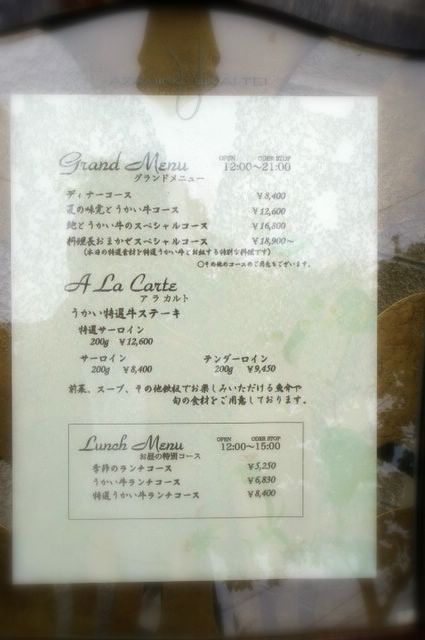 Grand Menu OPEN ODER STOP
グランドメニュー 12:00〜21:00
ディナーコース ￥8,400
夏の味覚とうかい牛コース ￥12,600
鮑とうかい牛のスペシャルコース ￥16,800
料理長おまかせスペシャルコース ￥18,900〜
(本日の特選食材と特選うかい牛とお献する特別な料理です)
○その他のコースのご用意もございます。
A La Carte
アラカルト
うかい特選牛ステーキ
特選サーロイン
200g ￥12,600
サーロイン テンダーロイン
200g ￥8,400 200g ￥9,450
前菜、スープ、その他鉄板でお楽しみいただける魚介や
旬の食材をご用意しております。
Lunch Menu OPEN ODER STOP
お昼の特別コース 12:00〜15:00
季節のランチコース ￥5,250
うかい牛ランチコース ￥6,830
特選うかい牛ランチコース ￥8,400